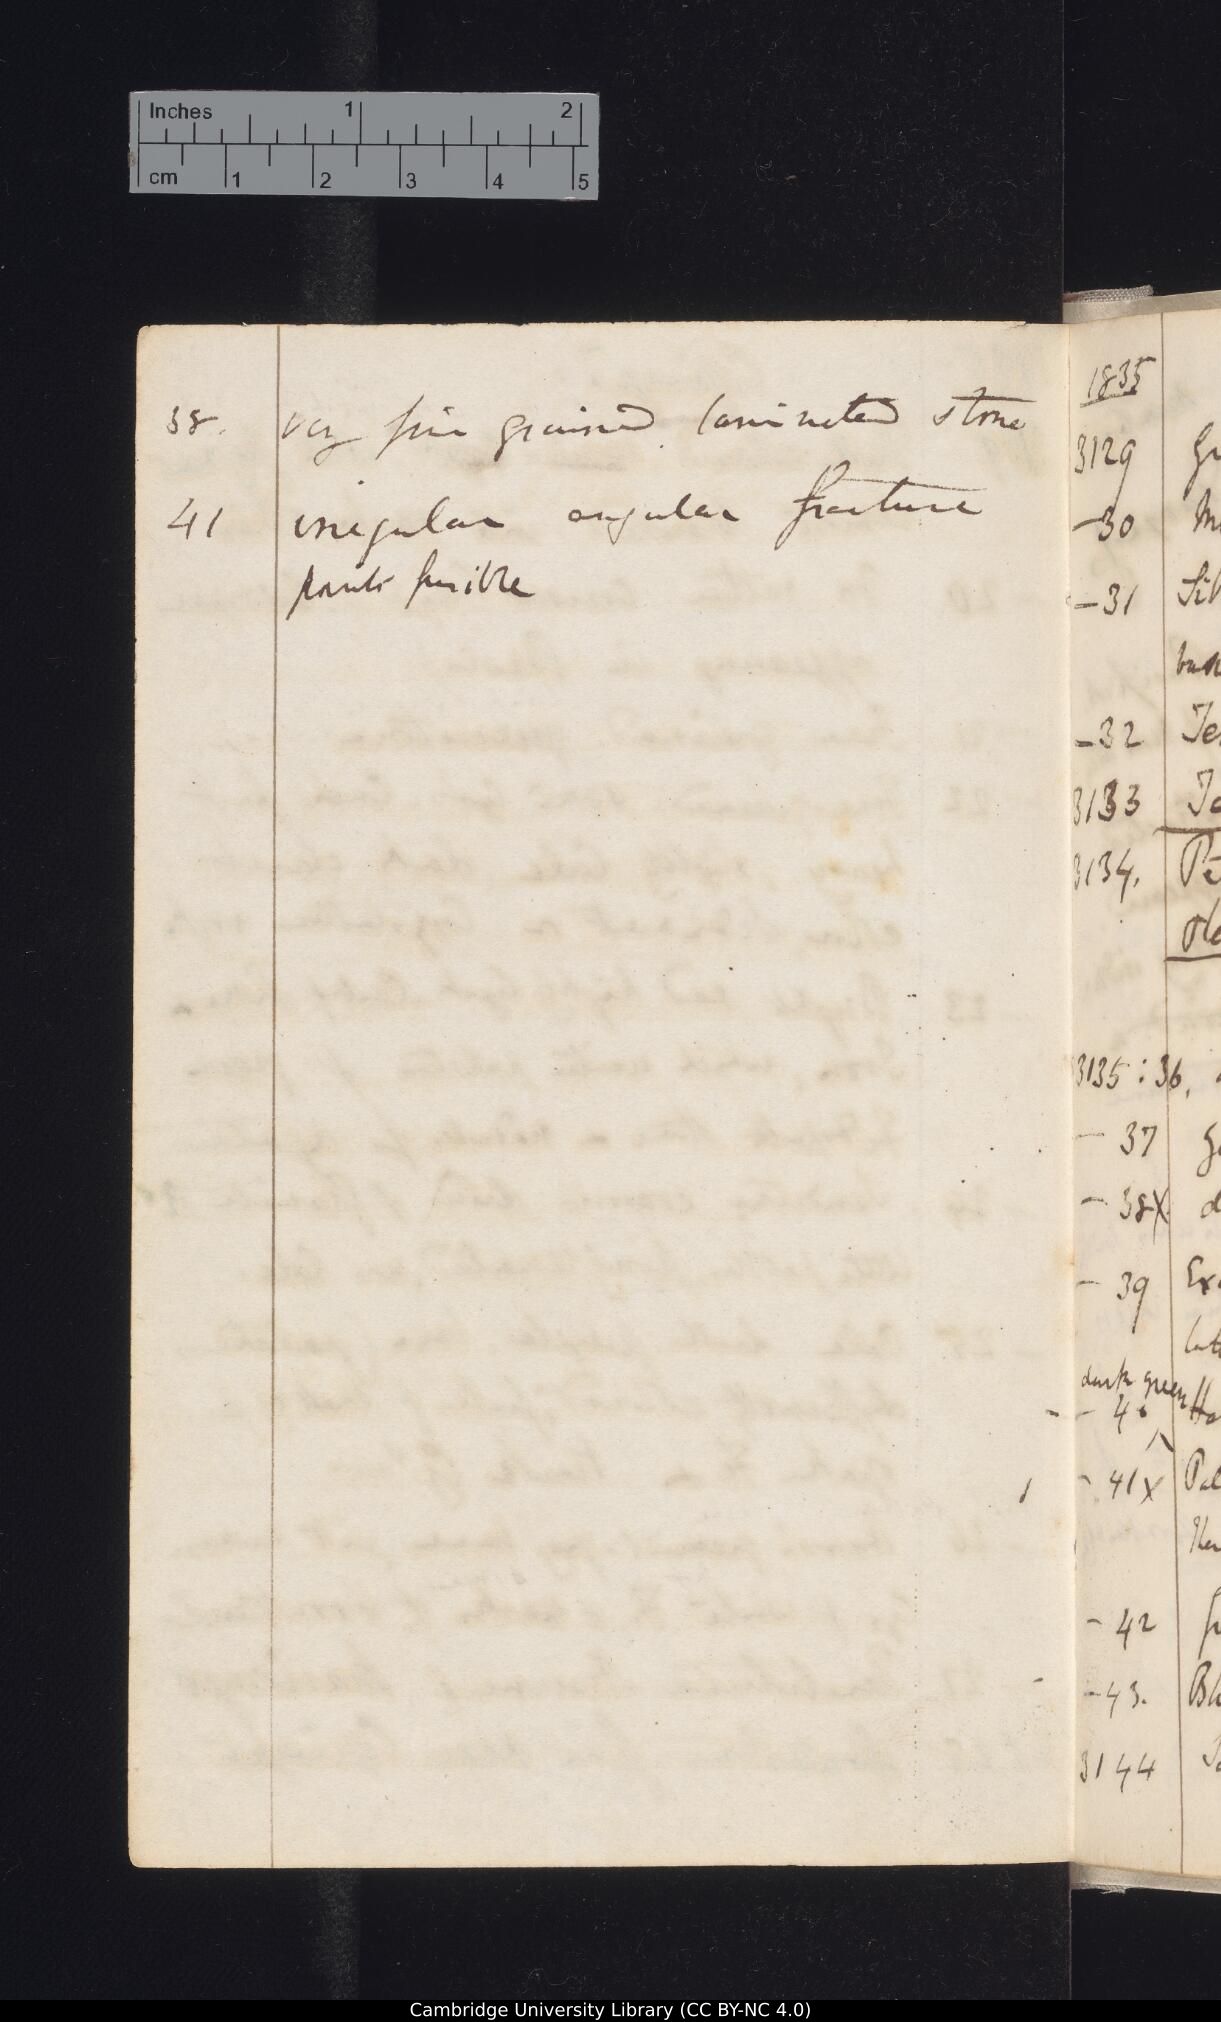 Inches 1 2
cm 1 2 3 4 5
38. very fine grained laminated stone
41 irregular angular fracture
parts fusible
1835
3129
-30
-31
-32
3133
3134.
3135 : 36.
- 37
- 38x
- 39
dark green
- 40
- 41x
- 42
-43.
3144
Cambridge University Library (CC BY-NC 4.0)